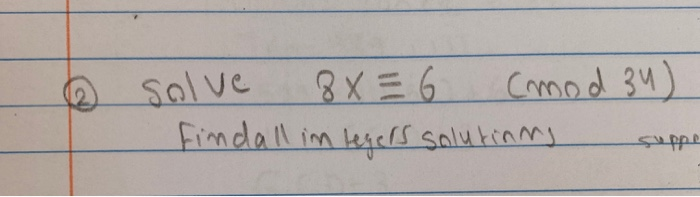 ② Solve 8x ≡ 6 (mod 34)
Find all integers solutions